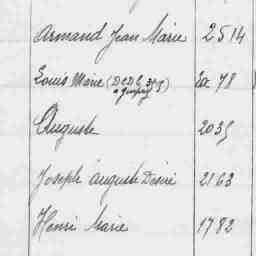 Armand Jean Marie 2514
Louis Marie (DCD 6 Ex 78
Auguste 2035
Joseph Auguste Désiré 2163
Henri Marie 1782